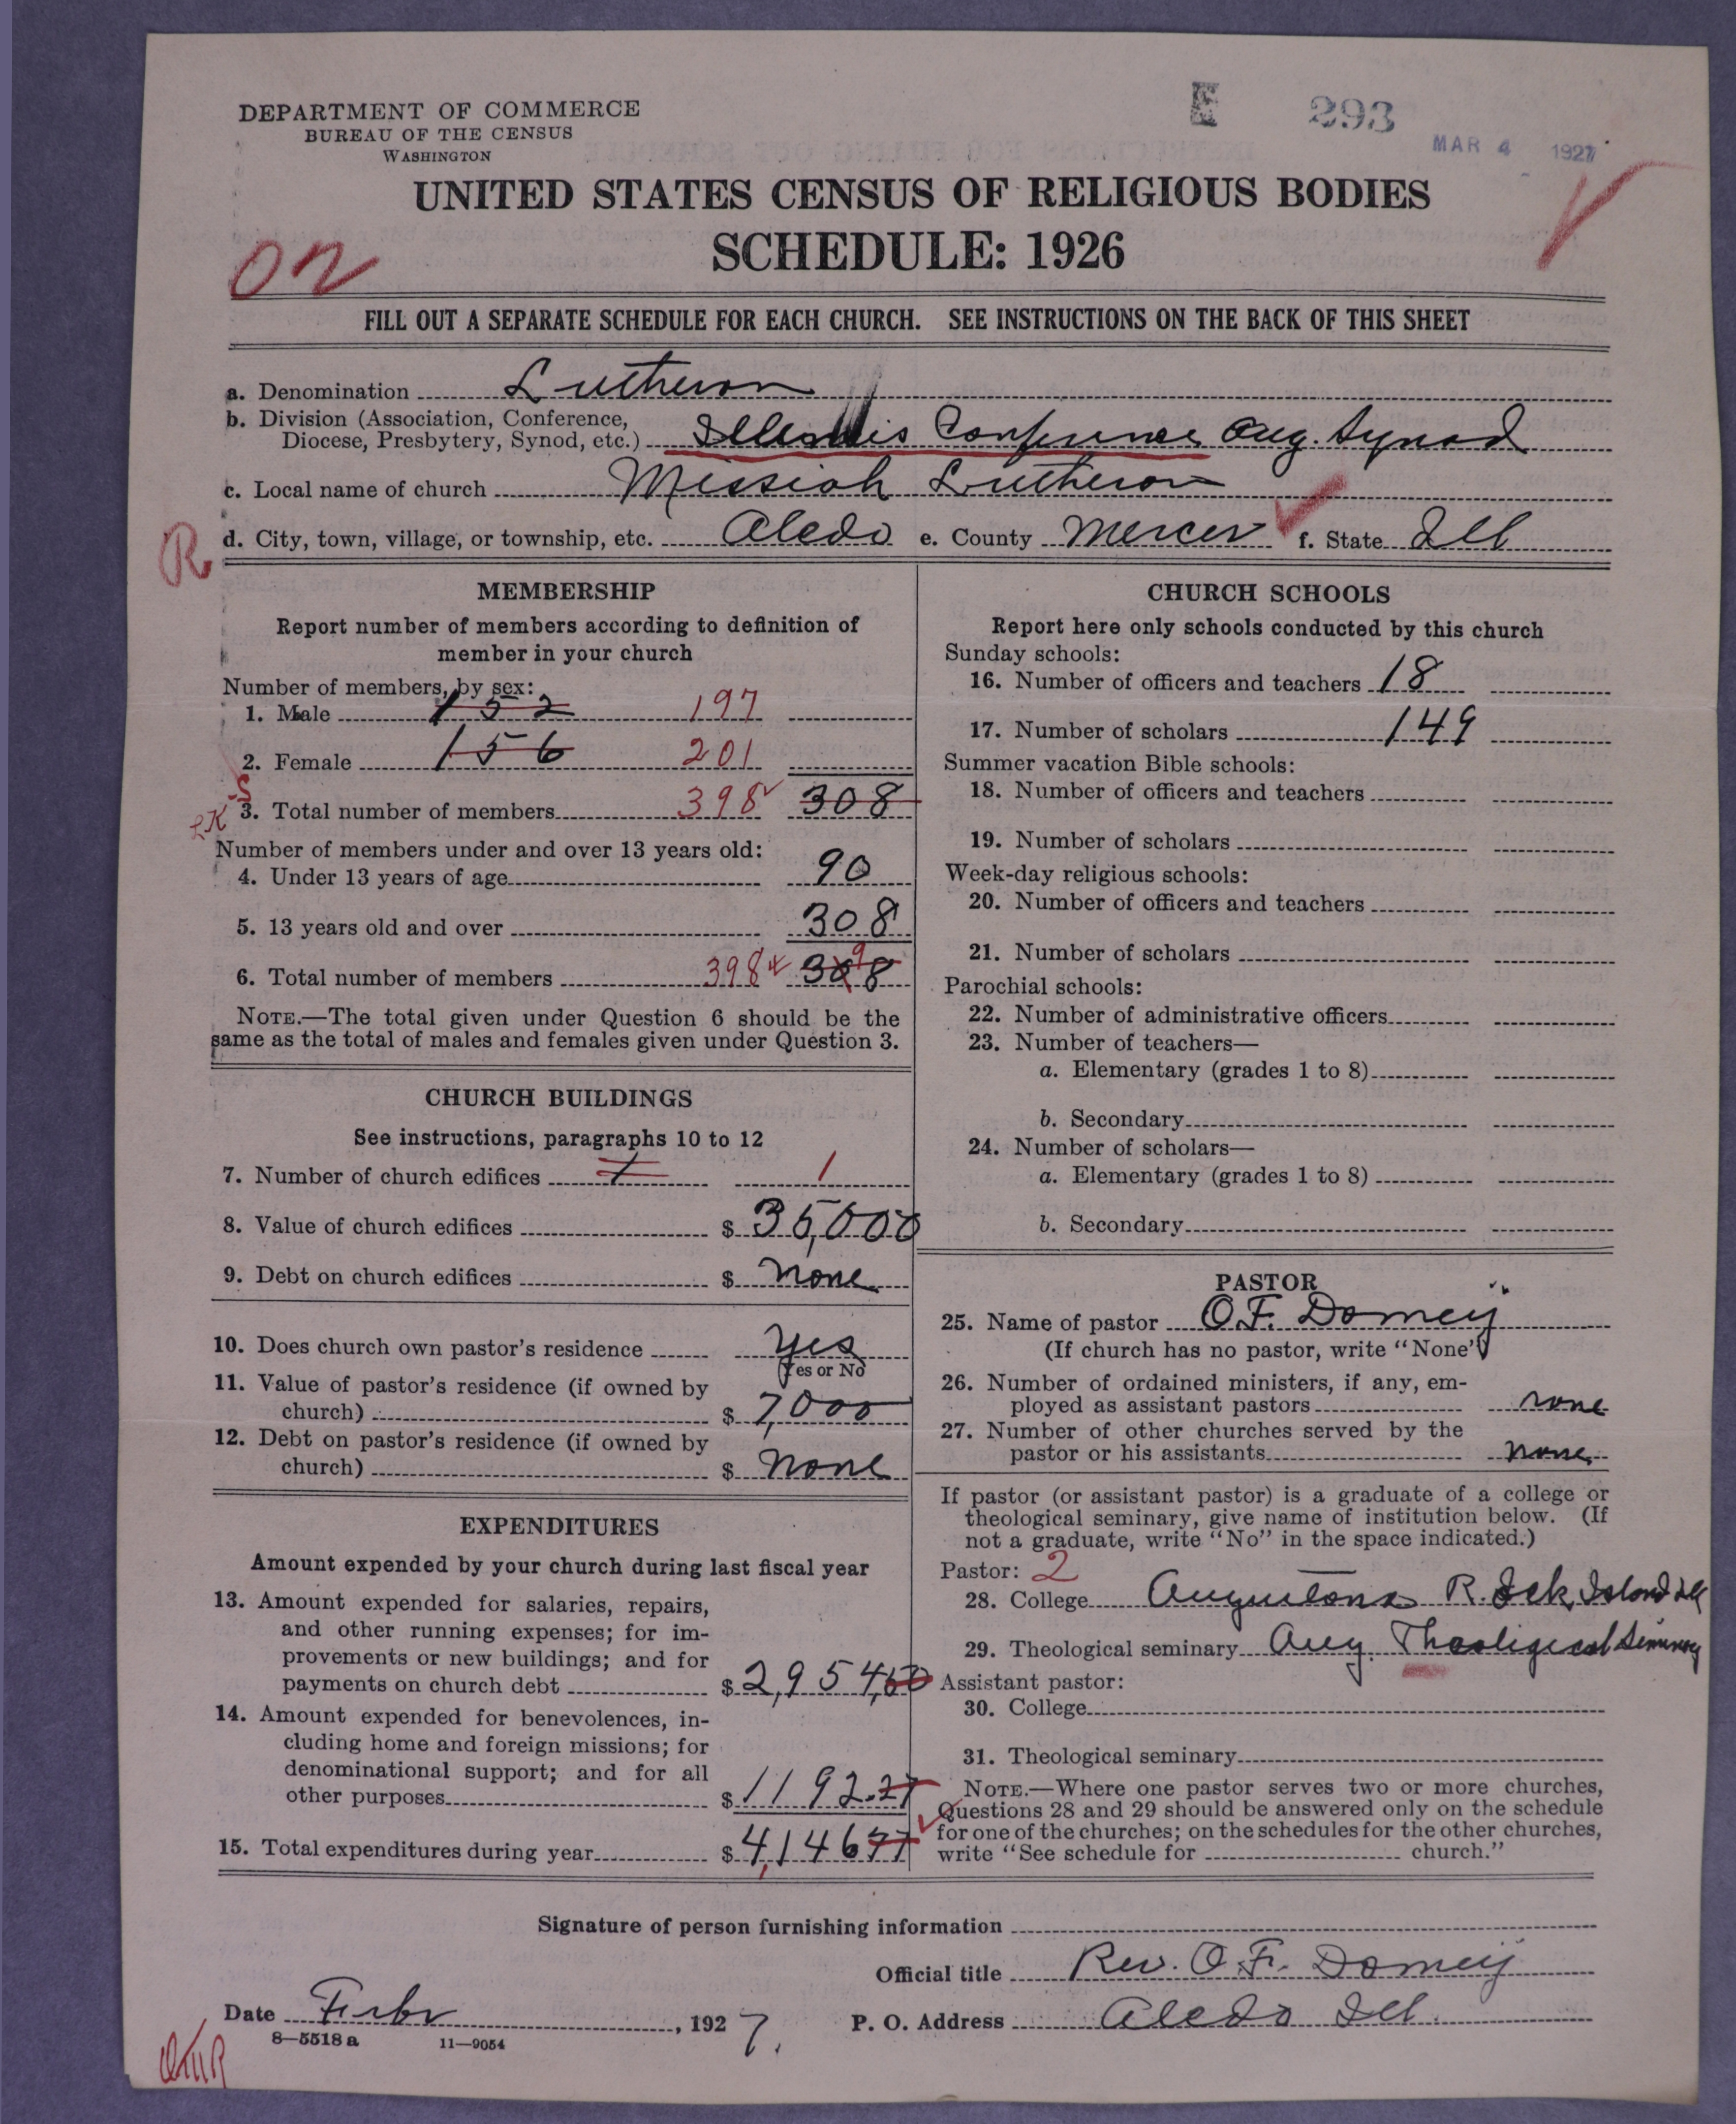 DEPARTMENT OF COMMERCE
BUREAU OF THE CENSUS
WASHINGTON
E 293
MAR 4 1927
UNITED STATES CENSUS OF RELIGIOUS BODIES
SCHEDULE: 1926
FILL OUT A SEPARATE SCHEDULE FOR EACH CHURCH. SEE INSTRUCTIONS ON THE BACK OF THIS SHEET
a. Denomination Lutheran
b. Division (Association, Conference,
Diocese, Presbytery, Synod, etc.) Illinois Conference Aug. Synod
c. Local name of church Messiah Lutheran
R d. City, town, village, or township, etc. Aledo e. County Mercer f. State Ill
MEMBERSHIP
Report number of members according to definition of
member in your church
Number of members, by sex:
1. Male 152 197
2. Female 156 201
3. Total number of members 398 308
Number of members under and over 13 years old:
4. Under 13 years of age 90
5. 13 years old and over 308
6. Total number of members 398 308
NOTE.—The total given under Question 6 should be the
same as the total of males and females given under Question 3.
CHURCH BUILDINGS
See instructions, paragraphs 10 to 12
7. Number of church edifices 1 1
8. Value of church edifices $ 35,000
9. Debt on church edifices $ none
10. Does church own pastor's residence yes
(Yes or No)
11. Value of pastor's residence (if owned by
church) $ 7,000
12. Debt on pastor's residence (if owned by
church) $ none
EXPENDITURES
Amount expended by your church during last fiscal year
13. Amount expended for salaries, repairs,
and other running expenses; for im-
provements or new buildings; and for
payments on church debt $ 2,954,50
14. Amount expended for benevolences, in-
cluding home and foreign missions; for
denominational support; and for all
other purposes $ 1192.27
15. Total expenditures during year $ 4,14677
CHURCH SCHOOLS
Report here only schools conducted by this church
Sunday schools:
16. Number of officers and teachers 18
17. Number of scholars 149
Summer vacation Bible schools:
18. Number of officers and teachers
19. Number of scholars
Week-day religious schools:
20. Number of officers and teachers
21. Number of scholars
Parochial schools:
22. Number of administrative officers
23. Number of teachers—
a. Elementary (grades 1 to 8)
b. Secondary
24. Number of scholars—
a. Elementary (grades 1 to 8)
b. Secondary
PASTOR
25. Name of pastor O.F. Domeij
(If church has no pastor, write "None")
26. Number of ordained ministers, if any, em-
ployed as assistant pastors none
27. Number of other churches served by the
pastor or his assistants none
If pastor (or assistant pastor) is a graduate of a college or
theological seminary, give name of institution below. (If
not a graduate, write "No" in the space indicated.)
Pastor: 2
28. College Augustana R. Island Ill
29. Theological seminary Aug. Theological Seminary
Assistant pastor:
30. College
31. Theological seminary
NOTE.—Where one pastor serves two or more churches,
Questions 28 and 29 should be answered only on the schedule
for one of the churches; on the schedules for the other churches,
write "See schedule for church."
Signature of person furnishing information
Official title Rev. O.F. Domeij
Date Febr , 1927. P. O. Address Aledo Ill.
8—5518 a 11—9054